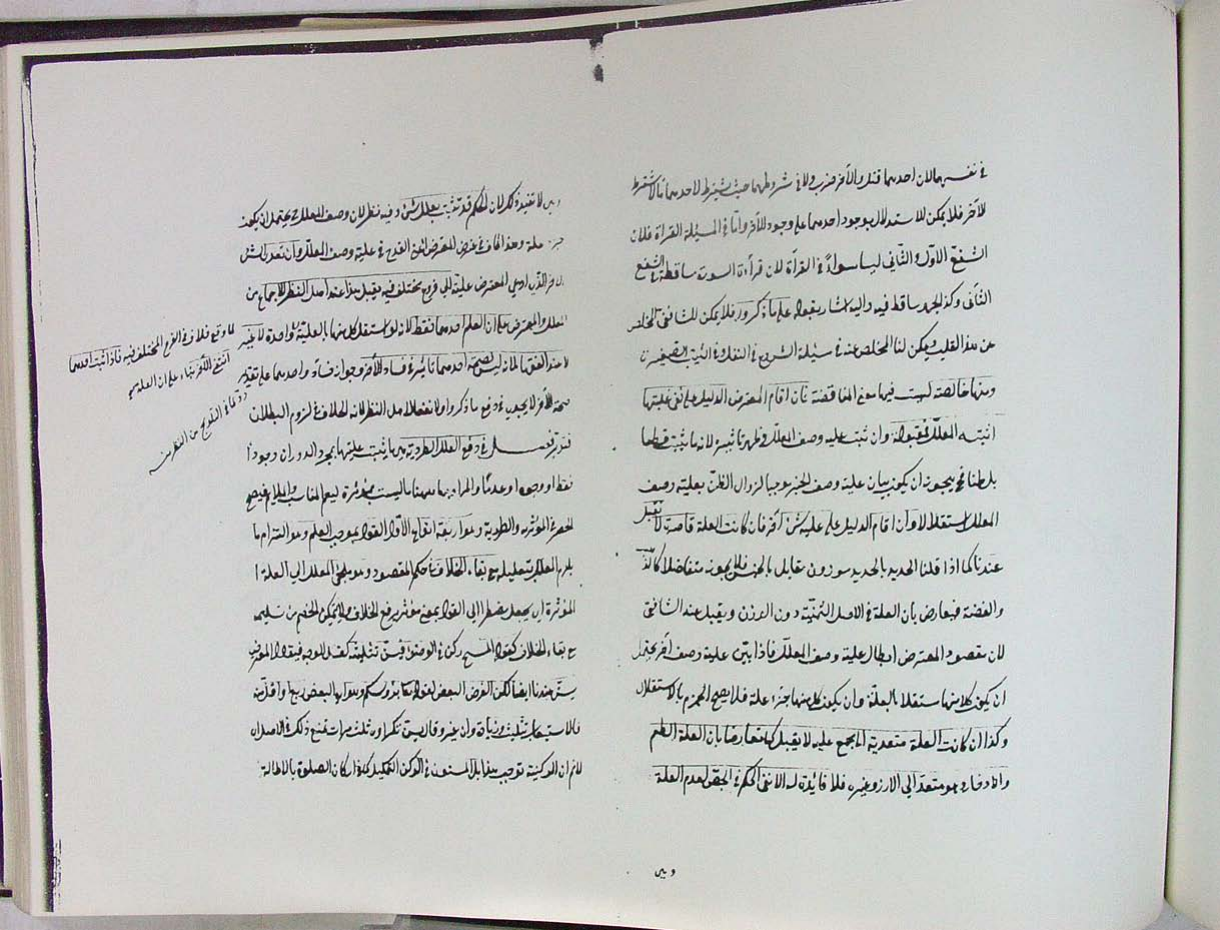 في نفسهما لان احدهما قتل والآخر ضرب ولا في شروطهما حيث يشترط لاحدهما ما لا يشترط
للآخر فلا يمكن الاستدلال بوجود احدهما على وجود الآخر واما في المسئلة القراة فلان
الشفع الاول والثاني ليسا سواء في القرأة لان قراءة السورة ساقطة في الشفع
الثاني وكذا الجهر ساقط فيه واليه اشار بقوله على ما ذكروا فلا يمكن للشافعي التخلص
من هذا القلب ويمكن لنا المخلص عنه في مسئلة الشروع في النفل وفي الثيب الصغيرة
ومنها خالصة ليست فيها معنى المناقضة فان اقام المعترض الدليل على نفي علية ما
اثبته المعلل فمقبولة وان ثبت علية وصف المعلل وظهر تاثيره لانه ما يثبت قطعا
بل ظنا فيجوز ان يكون بيان علية وصف الخبر موجبا لزوال الظن بعلية وصف
المعلل استقلالا وان اقام الدليل على علية شئ آخر فان كانت العلة قاصرة لا يقبل
عندنا كما اذا قلنا الحديد بالحديد موزون مقابل بالجنس فلا يجوز متفاضلا كالذهب
والفضة فيعارض بان العلة في الاصل الثمنية دون الوزن ويقبل عند الشافعي
لان مقصود المعترض ابطال علية وصف المعلل فاذا بين علية وصف آخر يحتمل
ان يكون كل منهما مستقلا بالعلة وان يكون كل منهما جزء علة فلا يصح الجزم بالاستقلال
وكذا ان كانت العلة متعدية الى مجمع عليه لا يقبل كما تعارضنا بان العلة الطعم
والادخار وهو متعد الى الارز وغيره فلا فائدة له الا نفي الحكم في الجص لعدم العلة
وهي
وهي لا تفيد ذلك لان الحكم قد تثبت بعلل شتى وفيه نظر لان وصف المعلل ح يحتمل ان يكون
جزء علة وهذا كاف في غرض المعترض اعني القدح في علية وصف المعلل وان تعدى الشئ
الآخر الذي ادعى المعترض عليته الى فروع مختلف فيه يقبل هذا عند اهل النظر للاجماع من
المعلل والمعترض على ان العلة احدهما فقط لانه لو استقل كل منهما بالعلية
لا عند الفقهاء لانه ليس لصحة احدهما تاثير في فساد الآخر وجواز فساد واحدهما على تقدير
صحة الآخر لا يجدي في دفع ما ذكروا
فتدبر فصل في دفع العلل الطردية وهي ما يثبت عليتها بمجرد الدوران وجودا
فقط او وجودا وعدما والمراد بها ههنا ما ليست بمؤثرة ليعم المناسب والملايم فيصح
الحصر في المؤثرة والطردية وهو اربعة انواع الاول القول بموجب العلة وهو التزام ما
يلزم المعلل بتعليله مع بقاء الخلاف في الحكم المقصود وهو يلجئ المعلل الى العلة ا
المؤثرة اي يجعله مضطرا الى القول بمعنى مؤثر يرفع الخلاف ولا يتمكن الخصم من تسليمه
مع بقاء الخلاف كقوله المسح ركن في الوضوء فيسن تثليثه كغسل الوجه فيقول المعترض
يسن عندنا ايضا لكن الفرض البعض لقوله تعالى برؤسكم وهو اما البعض ربع او اقل منه
فالاستيعاب تثليث وزيادة وان غير وقال يسن تكراره ثلث مرات تمنع ذلك في الاصل اى
لا نم ان الركنية توجب هذا بل المسنون في الركن التكميل كما في اركان الصلوة بالاطالة
لما وقع خلاف في الفرع المختلف فيه فاذا اثبت احدهما
انتفى الآخر بناء على ان العلة هي
وما في التلويح من النظر فيه